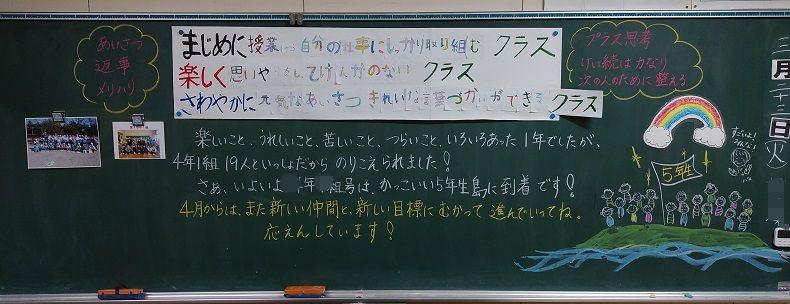 あいさつ
返事
メリハリ
まじめに 授業 自分の仕事にしっかり取り組む クラス
楽しく 思いや けんかのない クラス
さわやかに 元気なあいさつ きれいな言葉づかいができる クラス
プラス思考
けい続は力なり
次の人のために 整える
三月二十三日(火)
すごいよ!
みんな!
楽しいこと、うれしいこと、苦しいこと、つらいこと、いろいろあった1年でしたが、
4年1組 19人といっしょだから のりこえられました!
さあ、いよいよ 年 組号は、かっこいい5年生島に到着です!
4月からは、また新しい仲間と、新しい目標にむかって 進んでいってね。
応えんしています!
5年生